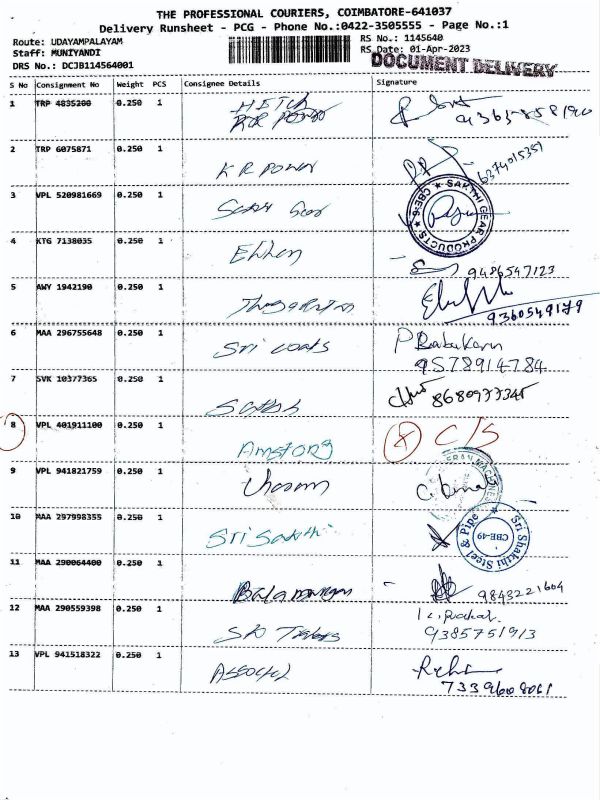 THE PROFESSIONAL COURIERS, COIMBATORE-641037
Delivery Runsheet - PCG - Phone No.:0422-3505555 - Page No.:1
Route: UDAYAMPALAYAM
Staff: MUNIYANDI
DRS No.: DCJB114564001
RS No.: 1145640
RS Date: 01-Apr-2023
DOCUMENT DELIVERY
S No Consignment No Weight PCS Consignee Details Signature
1 TRP 4835200 0.250 1
2 TRP 6075871 0.250 1 K R POWER 6374015351
3 VPL 520981669 0.250 1 SAKTHI GEAR PRODUCTS ★ CBE-6 ★
4 KTG 7138035 0.250 1 9486547123
5 AWY 1942190 0.250 1 9360549179
6 MAA 296755648 0.250 1 Sri coats P Rabakarn
9578914784
7 SVK 10377365 0.250 1 8680977345
8 VPL 401911100 0.250 1 Amstrong X C/S
9 VPL 941821759 0.250 1
10 MAA 297998355 0.250 1 Sri Sakthi Sri Shakthi Steel & Pipe CBE-49
11 MAA 290064400 0.250 1 9843221604
12 MAA 290559398 0.250 1
9385751913
13 VPL 941518322 0.250 1
7339608061